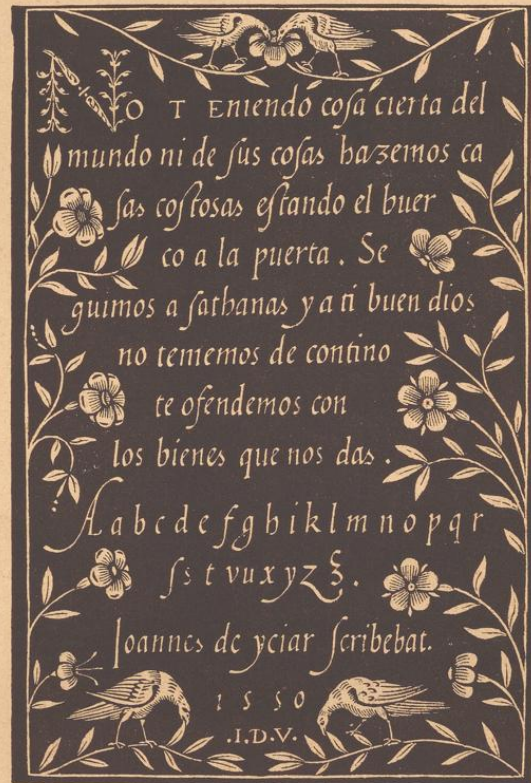 NO TEniendo coſa cierta del
mundo ni de ſus coſas hazemos ca
ſas coſtosas eſtando el huer
co a la puerta. Se
guimos a ſathanas y a ti buen dios
no tememos de contino
te ofendemos con
los bienes que nos das.
A a b c d e f g h i k l m n o p q r
ſ s t v u x y z ξ.
Joannes de yciar ſcribebat.
1550
.I.D.V.